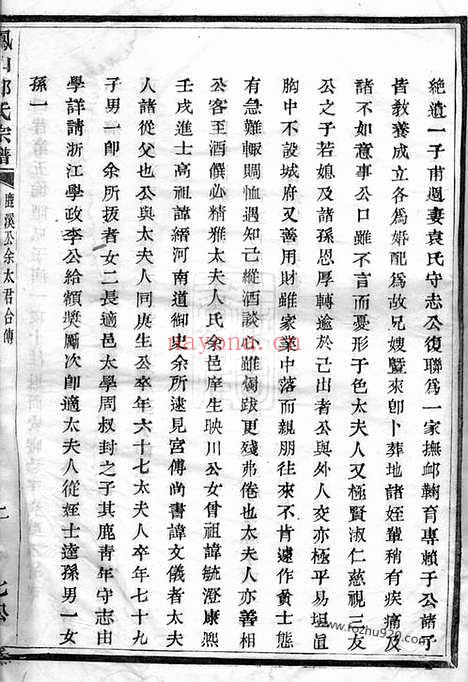 絶遺一子甫週妻袁氏守志公復聯爲一家撫卹鞠育專賴于公諸子
皆教養成立各爲婚配爲故兄嫂暨來卽卜葬地諸姪輩稍有疾痛及
諸不如意事公口雖不言而憂形于色太夫人又極賢淑仁慈視三友
公之子若媳及諸孫恩厚轉逾於己出者公與外人交亦極平易坦眞
胸中不設城府又善用財雖家業中落而親朋往來不肯遽作貧士態
有急難輒賙恤遇知己縱酒談心雖燭跋更殘弗倦也太夫人亦善相
公客至酒饌必精雅太夫人氏余邑庠生映川公女曾祖諱毓澄康熙
壬戌進士高祖諱縉河南道御史余所逮見宮傅尚書諱文儀者太夫
人諸從父也公與太夫人同庚生公卒年六十七太夫人卒年七十九
子男一卽余所拔者女二長適邑太學周叔封之子其鹿青年守志由
學詳請浙江學政李公給額奬厲次卽適太夫人從姪士達孫男一女
孫一
氏宗譜
鹿溪公余太君合傳
nayona.cn
www.fozhu920.com